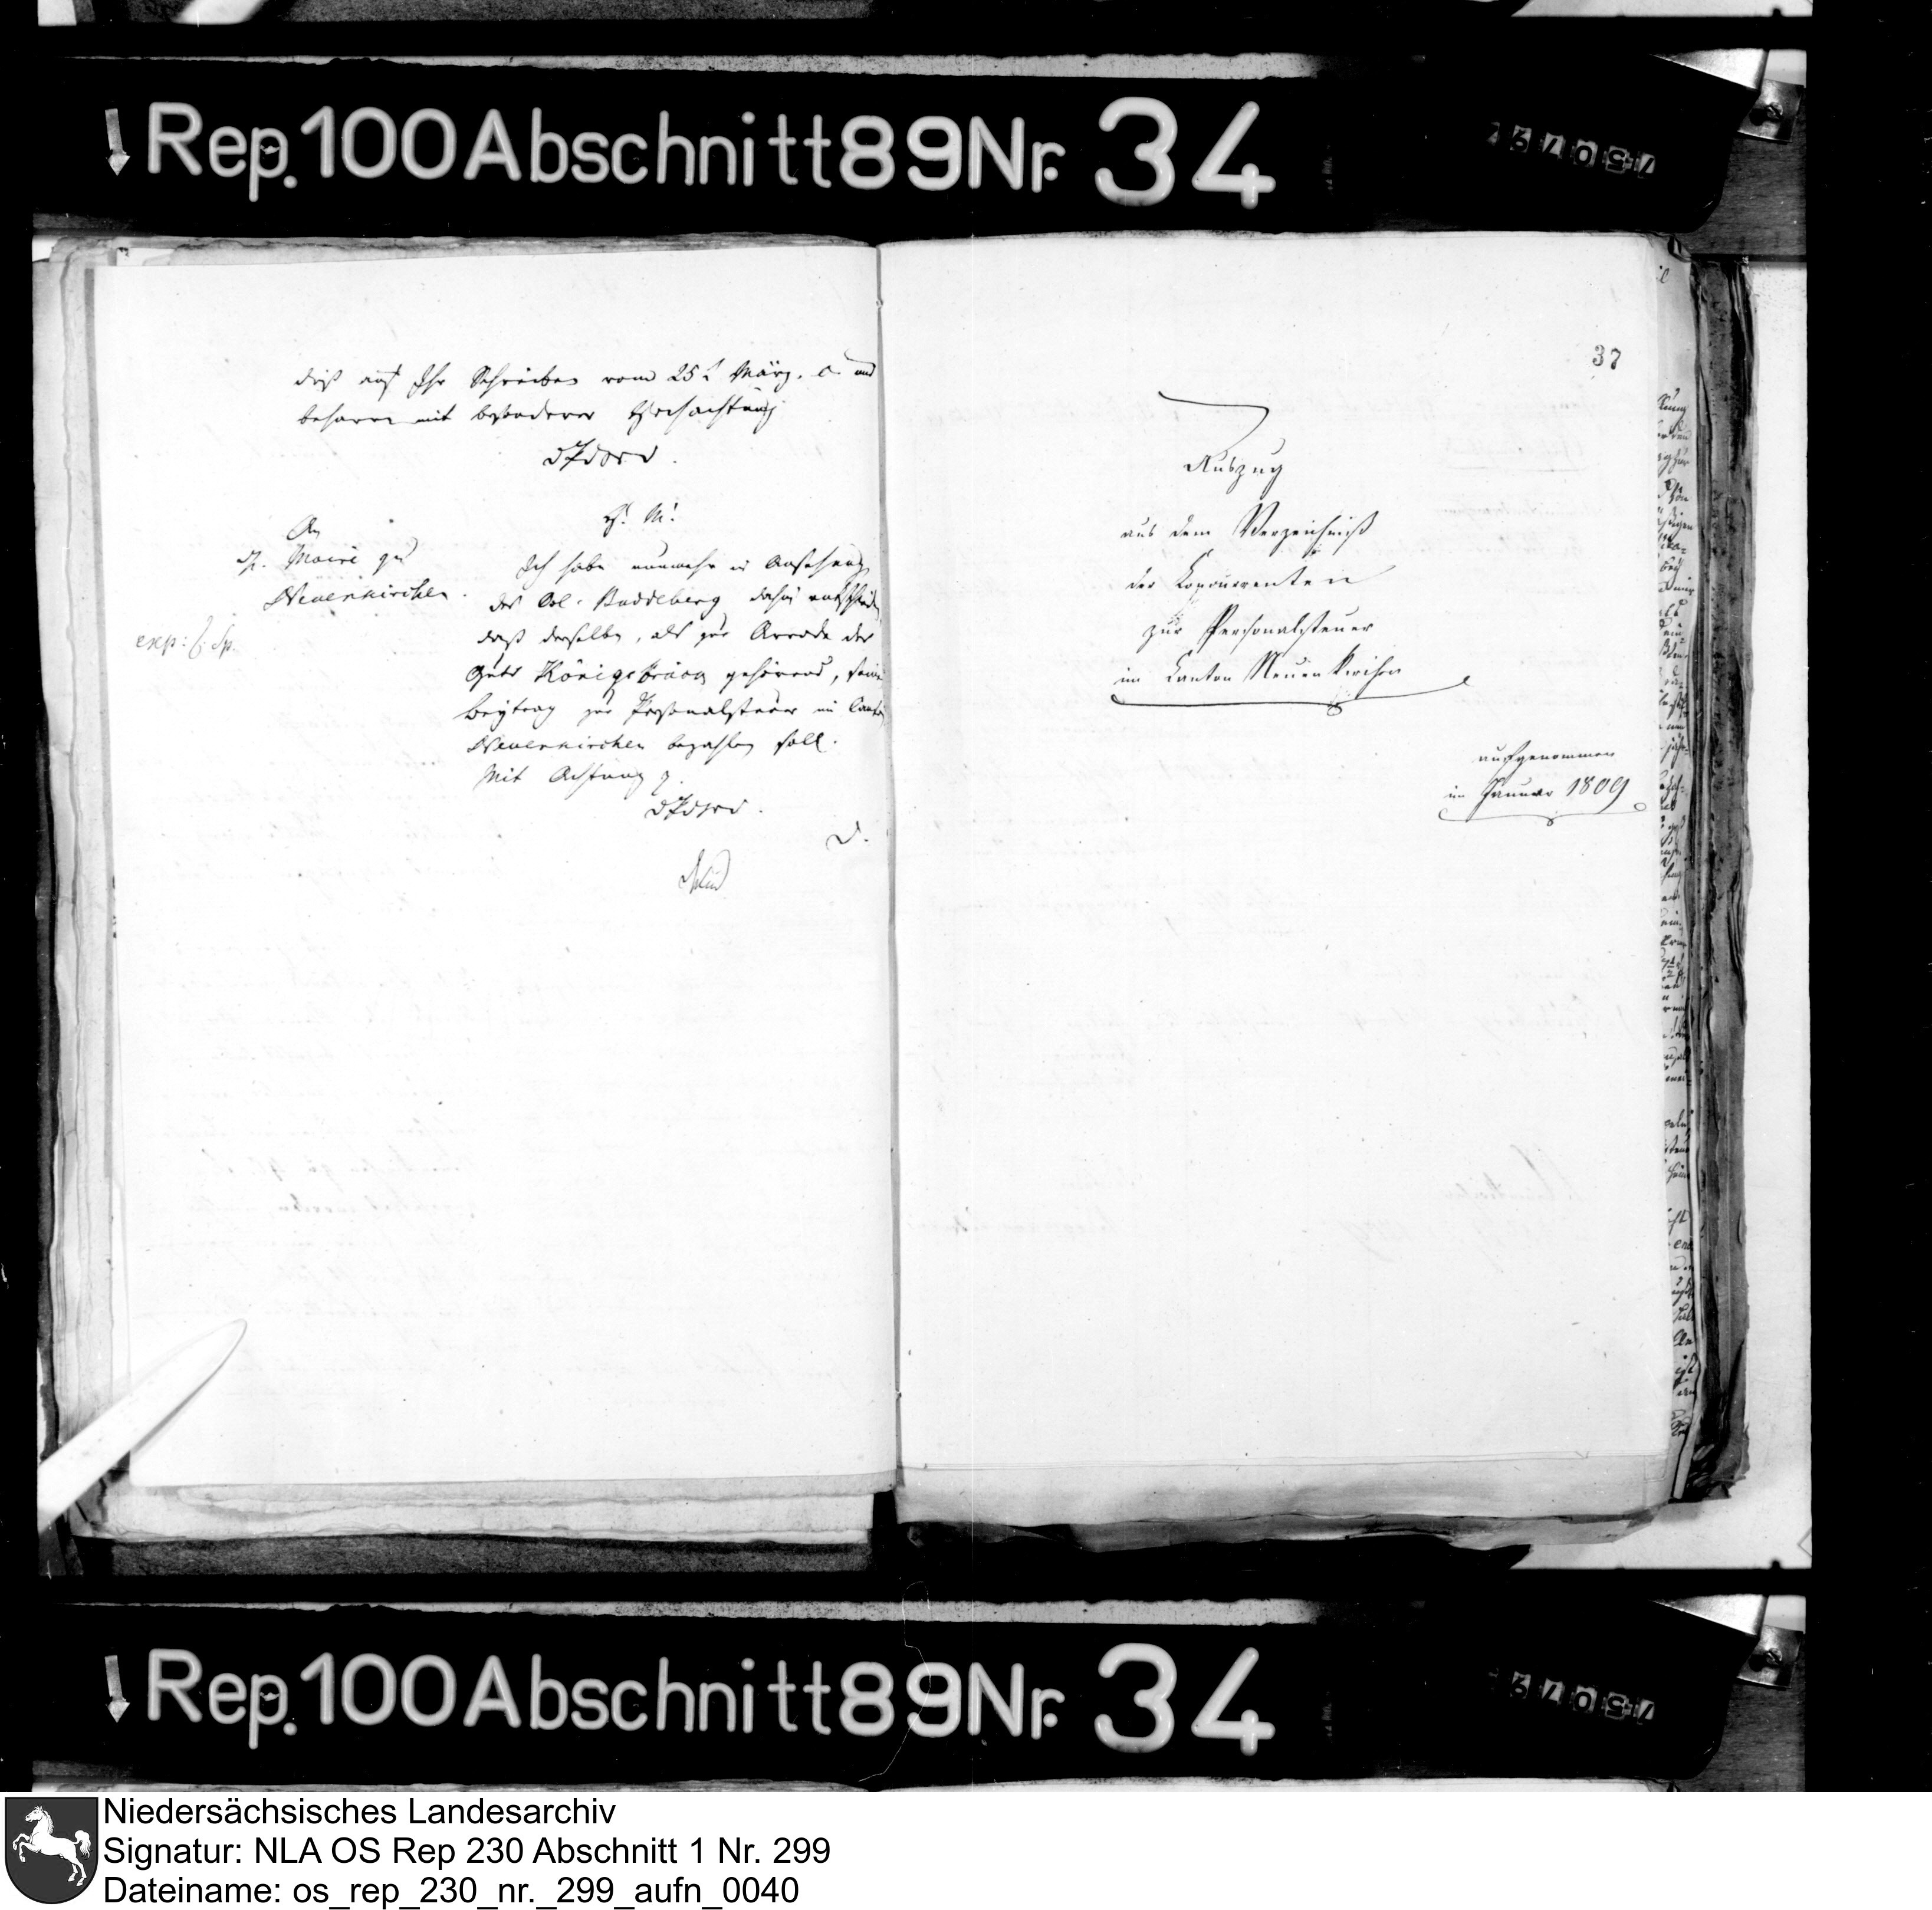 Rep. 100 Abschnitt 89 Nr. 34
dieß auf Ihr Schreiben vom 25t März. c. und
beharre mit besonderer Hochachtung
H. M.
An
H. Maire zu
Neuenkirchen.
exp:
Ich habe nunmehr in Ansehung
des Col. Buddeberg dahin entschieden
daß derselbe, als zur Arrode des
Guts Königsbrück gehörend, seinen
Beytrag zur Personalsteuer im Canton
Neuenkirchen bezahlen soll.
Mit Achtung
37
Auszug
aus dem Verzeichniß
der Konkurrenten
zur Personalsteuer
im Canton Neuenkirchen
aufgenommen
im Januar 1809
Rep. 100 Abschnitt 89 Nr. 34
Niedersächsisches Landesarchiv
Signatur: NLA OS Rep 230 Abschnitt 1 Nr. 299
Dateiname: os_rep_230_nr._299_aufn_0040